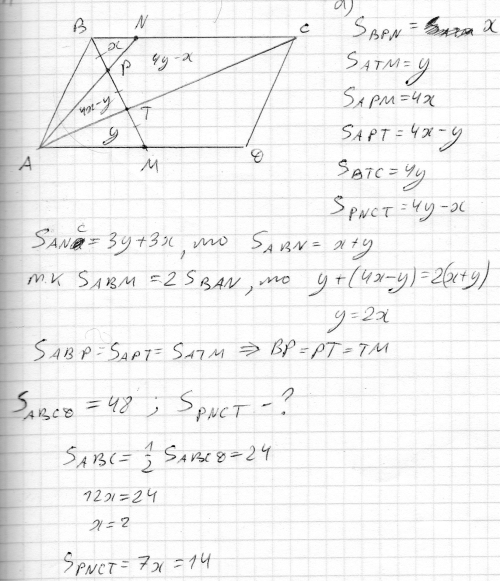 a)
B N C
x P 4y-x
4x-y T
y
A M D
S_BPN = x
S_ATM = y
S_APM = 4x
S_APT = 4x-y
S_BTC = 4y
S_PNCT = 4y-x
S_ANC = 3y+3x, то S_ABN = x+y
т.к S_ABM = 2 S_BAN, то y+(4x-y)=2(x+y)
y=2x
S_ABP = S_APT = S_ATM ⇒ BP=PT=TM
S_ABCD = 48 ; S_PNCT - ?
S_ABC = 1/2 S_ABCD = 24
12x=24
x=2
S_PNCT = 7x = 14